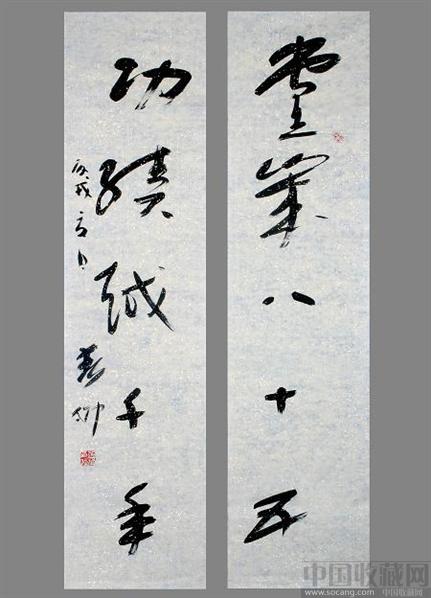 黨業八十五
功績越千年
丙戌
中国收藏网
www.socang.com 中国收藏网